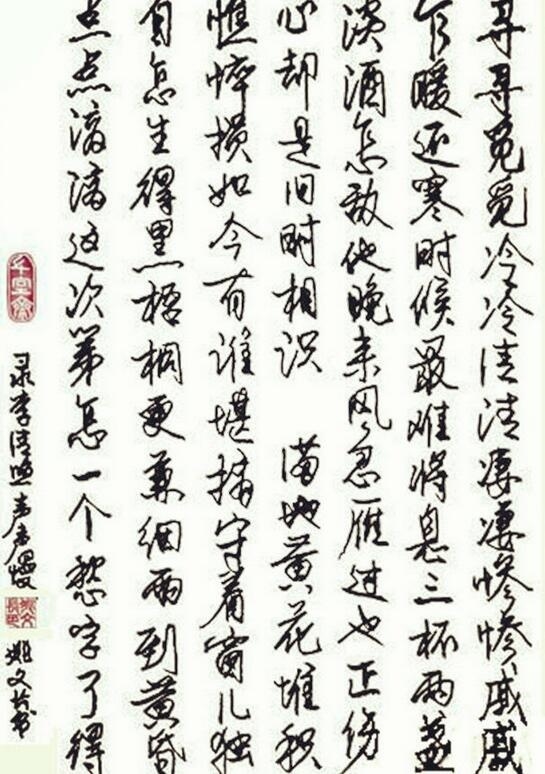 寻寻觅觅冷冷清清凄凄惨惨戚戚
乍暖还寒时候最难将息三杯两盏
淡酒怎敌他晚来风急雁过也正伤
心却是旧时相识 满地黄花堆积
憔悴损如今有谁堪摘守着窗儿独
自怎生得黑梧桐更兼细雨到黄昏
点点滴滴这次第怎一个愁字了得
录李清照声声慢
姚文